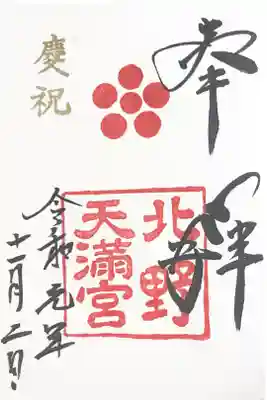 奉拝
北野
天満宮
慶祝
令和元年
十一月二日